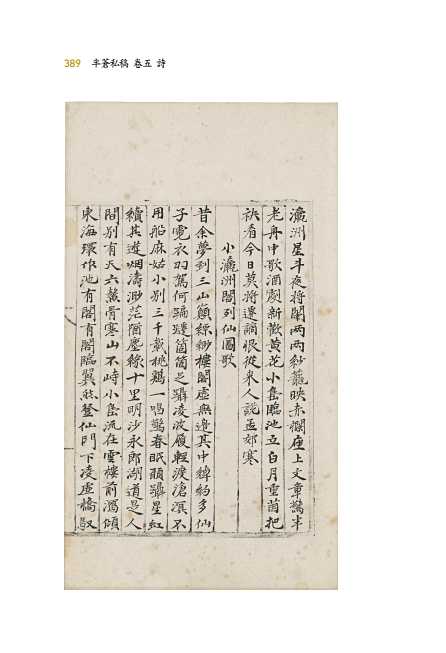 389 半蒼私稿 卷五 詩
瀛洲星斗夜將闌兩兩紗籠映赤欄座上文章驚半
老舟中歌酒劇新歡黃花小島臨池立白月重茵把
袂看今日莫將遷謫恨從來人說孟郊寒
小瀛洲閣列仙圖歌
昔余夢到三山巓縹緲樓閣虛無邊其中綽約多仙
子霓衣羽駕何蹁躚箇箇足躡凌波履輕淚滄溟不
用船麻姑小別三千載桃鷄一唱驚春眠願躡星虹
續其遊烟濤渺茫猶塵緣十里明沙永郎湖道是人
間別有天六鰲骨寒山不峙小島流在雲樓前瀉傾
東海環作池有閣有閣臨翼然登仙門下凌虛橋馭